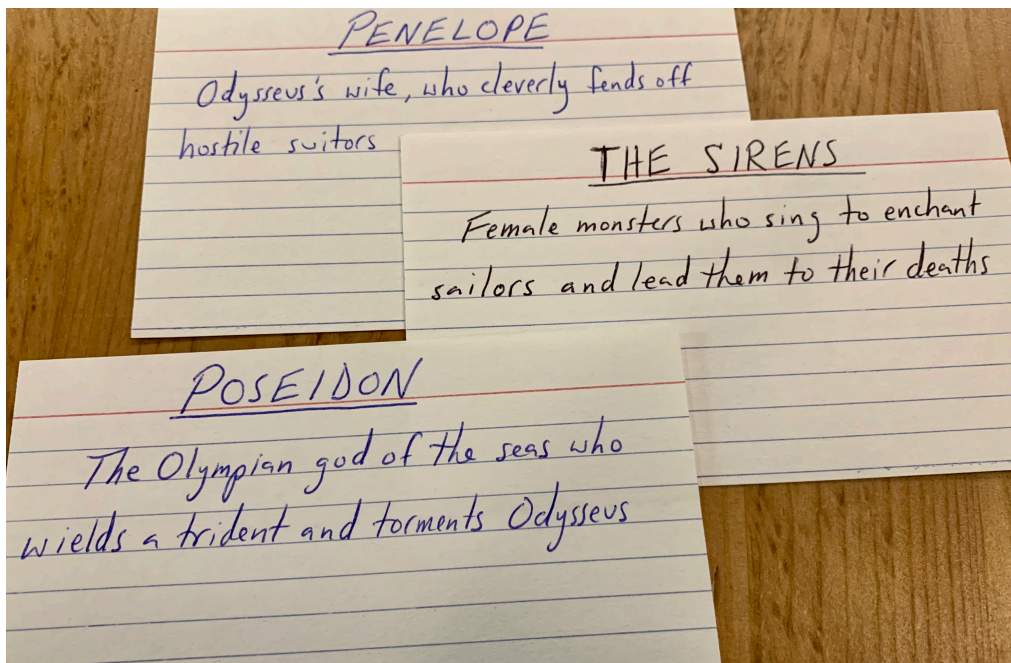 PENELOPE
Odysseus's wife, who cleverly fends off
hostile suitors
THE SIRENS
Female monsters who sing to enchant
sailors and lead them to their deaths
POSEIDON
The Olympian god of the seas who
wields a trident and torments Odysseus